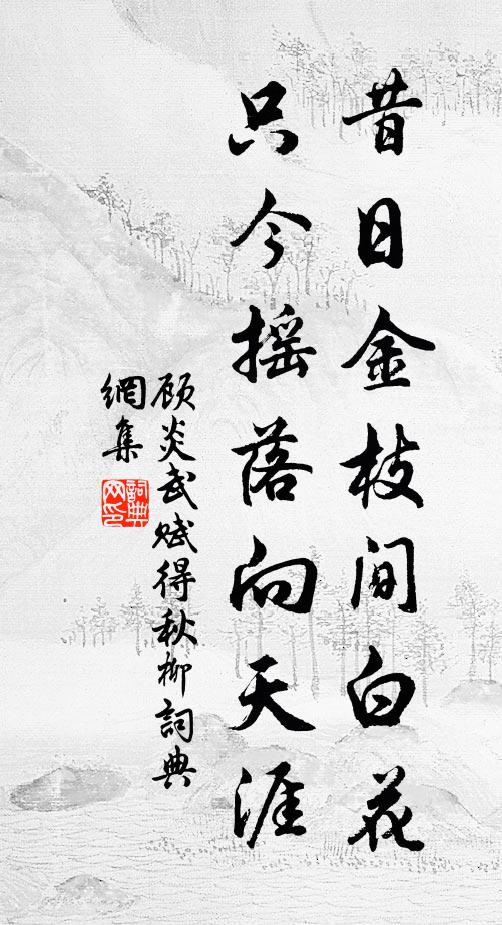 昔日金枝间白花
只今摇落向天涯
顾炎武赋得秋柳詞典
網集
詞典
网印